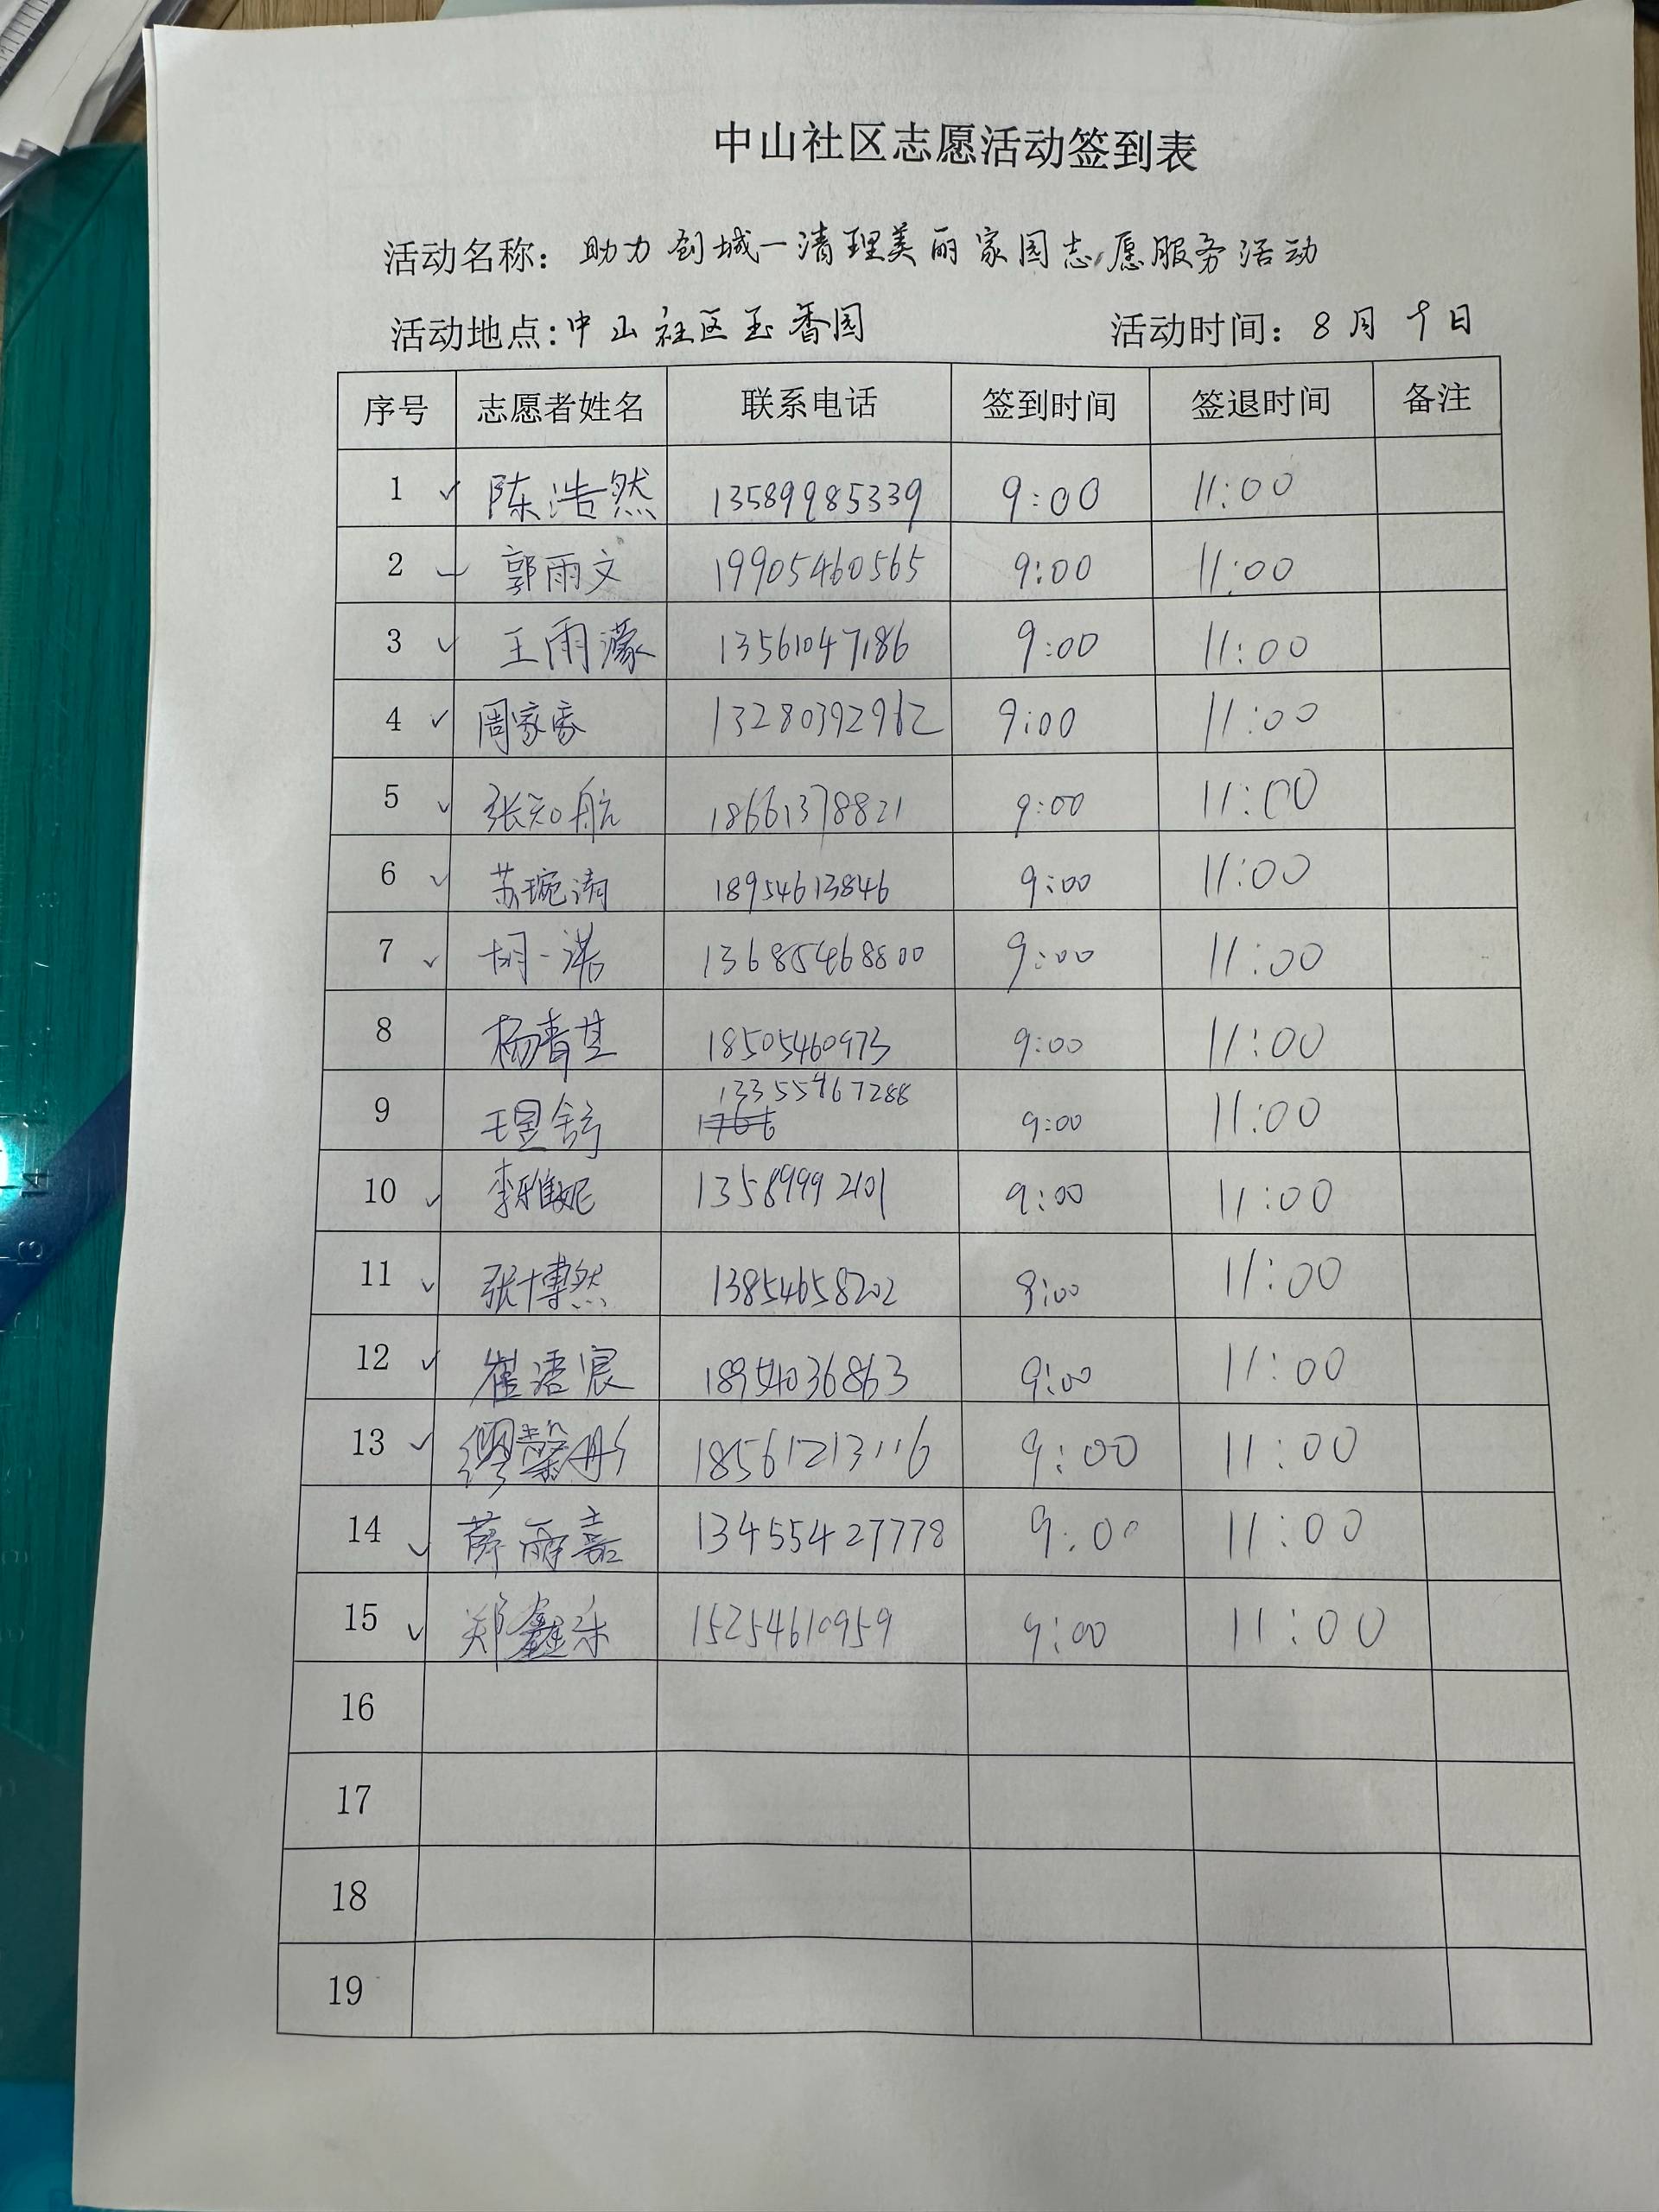 中山社区志愿活动签到表
活动名称：助力创城一清理美丽家园志愿服务活动
活动地点：中山社区玉香园 活动时间：8月9日
序号 志愿者姓名 联系电话 签到时间 签退时间 备注
1 ✓ 陈浩然 13589985339 9:00 11:00
2 ✓ 郭雨文 19905460565 9:00 11:00
3 ✓ 王雨濛 13561047186 9:00 11:00
4 ✓ 周家豪 13280392962 9:00 11:00
5 ✓ 张知航 18661378821 9:00 11:00
6 ✓ 苏琬清 18954613846 9:00 11:00
7 ✓ 胡一诺 13685468800 9:00 11:00
8 杨青其 18505460973 9:00 11:00
9 13355467288 9:00 11:00
10 ✓ 李雅妮 13589992101 9:00 11:00
11 ✓ 张博然 13854658202 9:00 11:00
12 ✓ 崔语宸 18954036863 9:00 11:00
13 ✓ 缪馨彤 18561213116 9:00 11:00
14 ✓ 薛雨嘉 13455427778 9:00 11:00
15 ✓ 郑鑫乐 15254610959 9:00 11:00
16
17
18
19
14
13